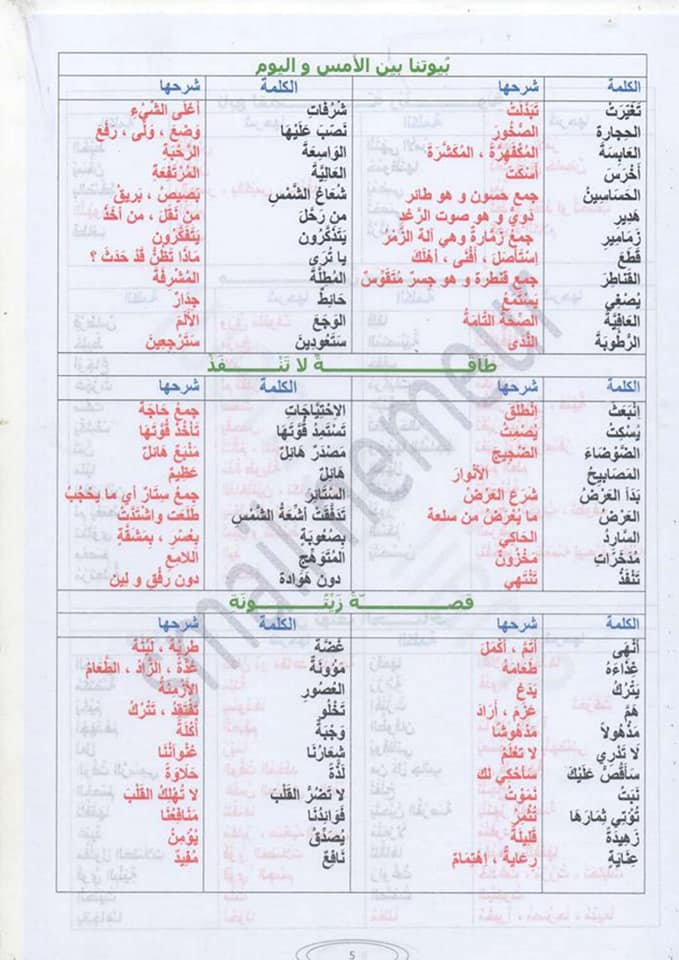 بُيوتنا بين الأمس و اليوم
الكلمة شرحها الكلمة شرحها
تَغَيَّرَتْ تَبَدَّلَتْ شُرُفَاتِ أَعْلَى الشَّيْءِ
الحِجارة الصُّخُورَ نَصَبَ عَلَيْهَا وَضَعَ ، وَلَّى ، رَفَعَ
العَابِسَةَ المُكْفَهِرَّةَ ، المُكَشِّرَةَ الوَاسِعَةَ الرَّحْبَةِ
أَخْرَسَ أَسْكَتَ العَالِيَّةَ المُرْتَفِعَةَ
الحَسَاسِينُ جمع حَسُّون و هو طائر شُعَاعُ الشَّمْسِ بَصِيصٌ ، بَرِيقٌ
هَدِيرِ دَوِيُّ و هو صوت الرَّعْد من رَحَّلَ من نَقَلَ ، من أخَذَ
زَمَامِيرِ جمع زَمَّارة وهي آلة الزَّمْر يَتَذَكَّرُون يَتَفَكَّرُون
قَطَعَ إِسْتَأصَلَ ، أَفْنَى ، أَهْلَكَ يا تُرَى مَاذَا تَظُنُّ قَدْ حَدَثَ ؟
القَنَاطِرَ جمع قنطرة و هو جِسرٌ مُتَقَوِّسٌ المُطِلَّةَ المُشْرِفَةَ
يُصْغِي يَسْتَمِعُ حَائِطِ جِدَارُ
العَافِيَّةَ الصِّحَّةُ التَّامَةُ الوَجَعَ الأَلَمَ
الرُّطُوبَةَ النَّدَى سَتَعُودِينَ سَتَرْجِعِينَ
طاقَــــةٌ لا تَنْــــفَذُ
الكلمة شرحها الكلمة شرحها
اِنْبَعَثَ اِنْطَلَقَ الاِحْتِيَّاجَاتِ جمعُ حَاجَة
يُسْكِتُ يُصْمِتُ تَسْتَمِدُّ قُوَّتَهَا تَأخُذُ قُوَّتَهَا
الضَّوْضَاءَ الضَّجِيجَ مَصْدَرٌ هَائِلٌ مَنْبَعٌ هَائِلٌ
المَصَابِيحُ الأنْوارَ هَائِلٌ عظِيمٌ
بَدَأ العَرْضُ شَرَعَ العَرْضُ السَّتَائِرَ جمع سِتَار أي ما يَحْجُبُ
العَرْضُ ما يُعْرَضُ من سلعة تَدَفَّقَتْ أشِعَّةُ الشَّمْسِ طَلَعَت واشْتَدَّتْ
السَّارِدُ الحَاكِي بِصُعُوبَةٍ بِعُسْرٍ ، بِمَشَقَّةٍ
مُدَّخَرَاتٍ مَخْزُونٌ المُتَوَهِّج اللامِعِ
تَنْفَذُ تَنْتَهِي دون هَوَادة دون رِفْقٍ و لين
قصــــةُ زَيْتُـــونَة
الكلمة شرحها الكلمة شرحها
أَنْهَى أَتَمَّ ، أَكْمَلَ غَضَّة طَرِيَّة ، لَيِّنَة
غِذَاءَهُ طَعَامَهُ مَؤُونَةً عُدَّةُ ، الزَّاد ، الطَّعَامُ
يَتْرُكَ يَدَعَ العُصُورِ الأزْمِنَةُ
هَمَّ عَزَمَ ، أرَادَ تَخْلُو تَفْتَقِدُ ، تَتْرُكُ
مَذْهُولاً مَدْهُوشًا وَجْبَةٌ أَكْلَةٌ
لَا تَدْرِي لا تَعْلَمُ شِعَارُنَا عُنْوَانُنَا
سَأَقُصُّ عَلَيْكَ سَأَحْكِي لك لَذَّة حَلَاوَة
نَبَتُ نَمَوْتُ لا تَضُرُّ القَلْبَ لا تُهْلِكُ القَلْبَ
تُؤْتِي ثِمَارَهَا تُثْمِرُ فَوَائِدُنَا مَنَافِعُنَا
زَهِيدَةً قَلِيلَةً يُصَدِّقُ يُؤمِنُ
عِنَايَةً رِعَايَةً ، اِهْتِمَامَ نَافِعٌ مُفِيدٌ
5